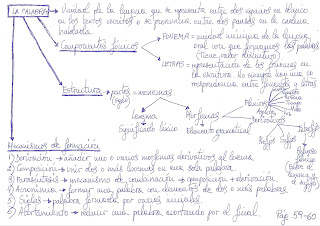 LA PALABRA → Unidad de la lengua que se representa entre dos espacios en blanco
en los textos escritos o se pronuncia entre dos pausas en la cadena
hablada.
Componentes fónicos
FONEMA = unidad mínima de la lengua
oral con que formamos las palabras
(tiene valor distintivo)
LETRAS = representación de los fonemas en
la escritura. No siempre hay una co-
rrespondencia entre fonemas y letras
Estructura → partes = monemas
Lexema
Significado léxico
Morfemas
Elemento gramatical
Flexivos
Género
Número
Tiempo
Modo
Derivativos
Prefijos
Sufijos
Mecanismos de formación
1) Derivación → añadir uno o varios morfemas derivativos al lexema.
2) Composición → unir dos o más lexemas en una sola palabra.
3) Parasíntesis → mecanismo de combinación → composición + derivación.
4) Acronimia → formar una palabra con elementos de dos o más palabras.
5) Siglas → palabra formada por varias iniciales.
6) Acortamiento → reducir una palabra acortando por el final.
Pág 59-60